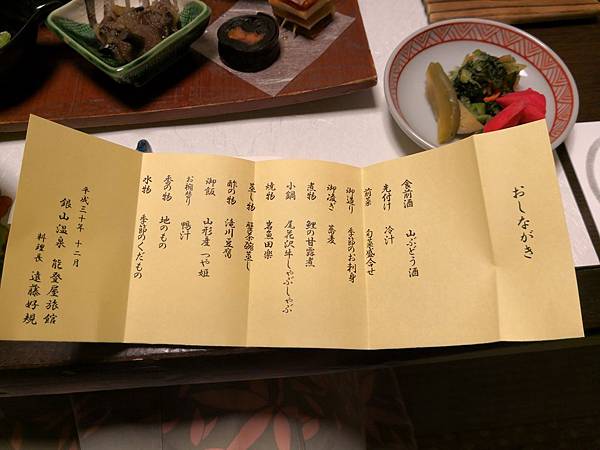 おしながき
食前酒 山ぶどう酒
先付け 冷汁
前菜 旬菜盛合せ
御造り 季節のお刺身
御凌ぎ 蕎麦
煮物 鯉の甘露煮
小鍋 尾花沢牛しゃぶしゃぶ
焼物 岩魚田楽
蒸し物 蟹茶碗蒸し
酢の物 滝川豆腐
御飯 山形産 つや姫
お椀替り 鴨汁
香の物 地のもの
水物 季節のくだもの
平成三十年 十二月
銀山温泉 能登屋旅館
料理長 遠藤好規